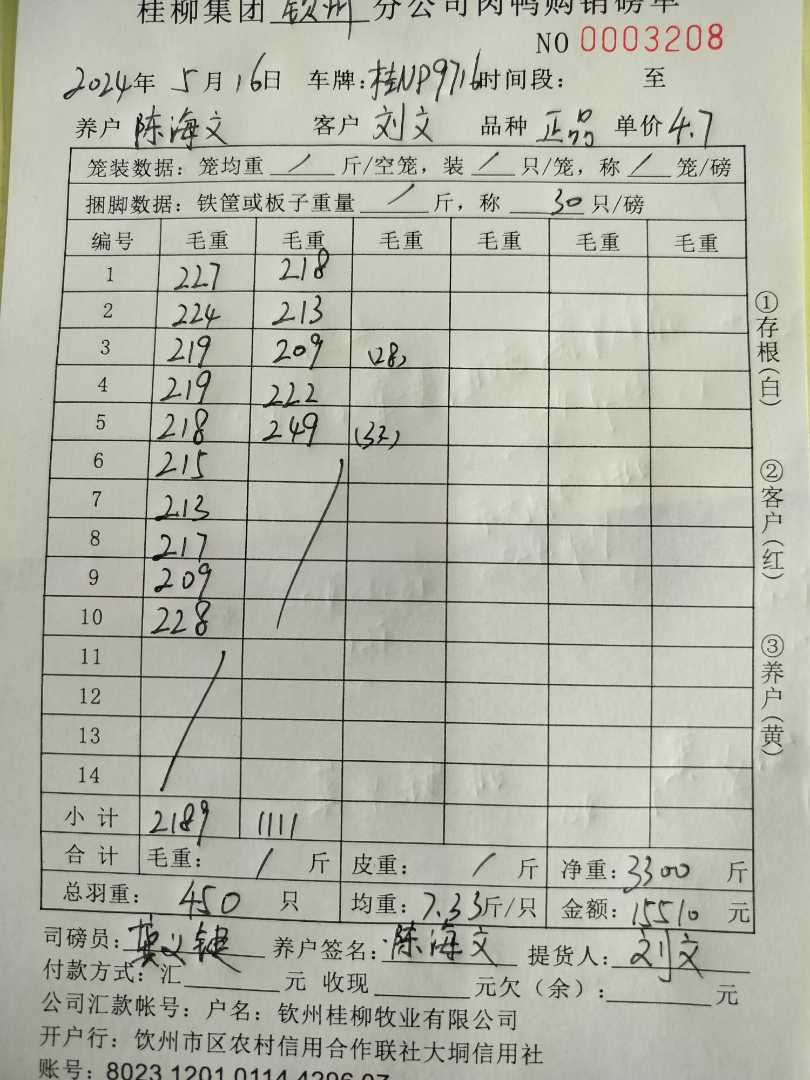 桂柳集团 钦州 分公司肉鸭购销磅单
NO 0003208
2024年 5月16日 车牌:桂NP9716时间段: 至
养户 陈海文 客户 刘文 品种 正品 单价4.7
笼装数据: 笼均重 / 斤/空笼, 装 / 只/笼, 称 / 笼/磅
捆脚数据: 铁筐或板子重量 / 斤, 称 30 只/磅
编号 毛重 毛重 毛重 毛重 毛重 毛重
1 227 218
2 224 213
3 219 209 (28)
4 219 222
5 218 249 (32)
6 215
7 213
8 217
9 209
10 228
11
12
13
14
小计 2189 1111
合计 毛重: / 斤 皮重: / 斤 净重:3300 斤
总羽重: 450 只 均重: 7.33斤/只 金额: 15510 元
司磅员: 养户签名: 陈海文 提货人: 刘文
付款方式: 汇 元 收现 元欠(余): 元
公司汇款帐号: 户名: 钦州桂柳牧业有限公司
开户行: 钦州市区农村信用合作联社大垌信用社
账号: 8023 1201 0114 4296 07
①存根(白)
②客户(红)
③养户(黄)